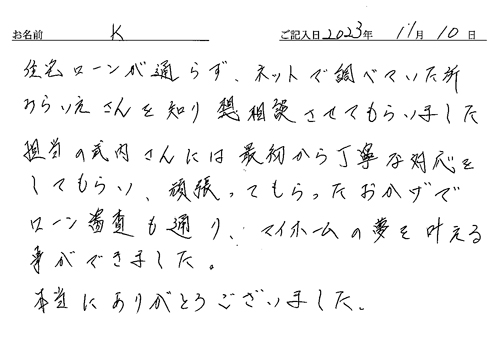 お名前 K ご記入日 2023年 11月 10日
住宅ローンが通らず、ネットで調べていた所
みらいえさんを知り 相談させてもらいました
担当の武内さんには最初から丁寧な対応を
してもらい、頑張ってもらったおかげで
ローン審査も通り、マイホームの夢を叶える
事ができました。
本当にありがとうございました。